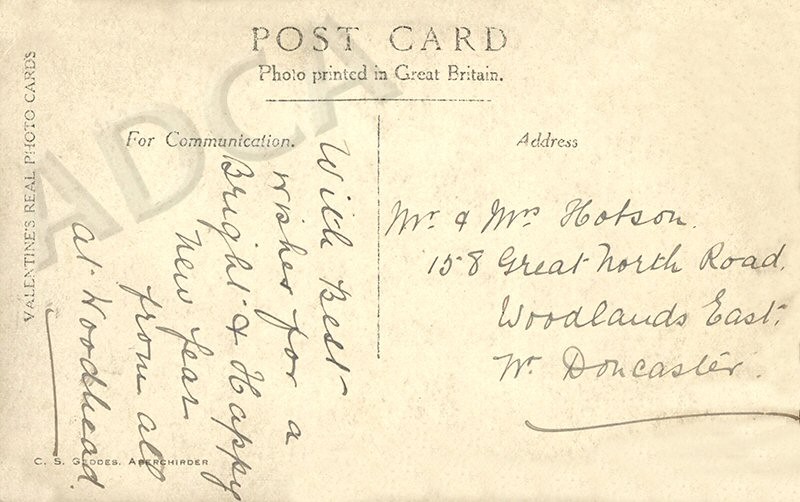 POST CARD
Photo printed in Great Britain.
VALENTINE'S REAL PHOTO CARDS
For Communication.
Address
With Best
wishes for a
Bright & Happy
New Year
from all
at Woodhead.
Mr. & Mrs Hotson.
158 Great North Road,
Woodlands East.
Nr. Doncaster.
C. S. GEDDES. ABERCHIRDER
ADCA